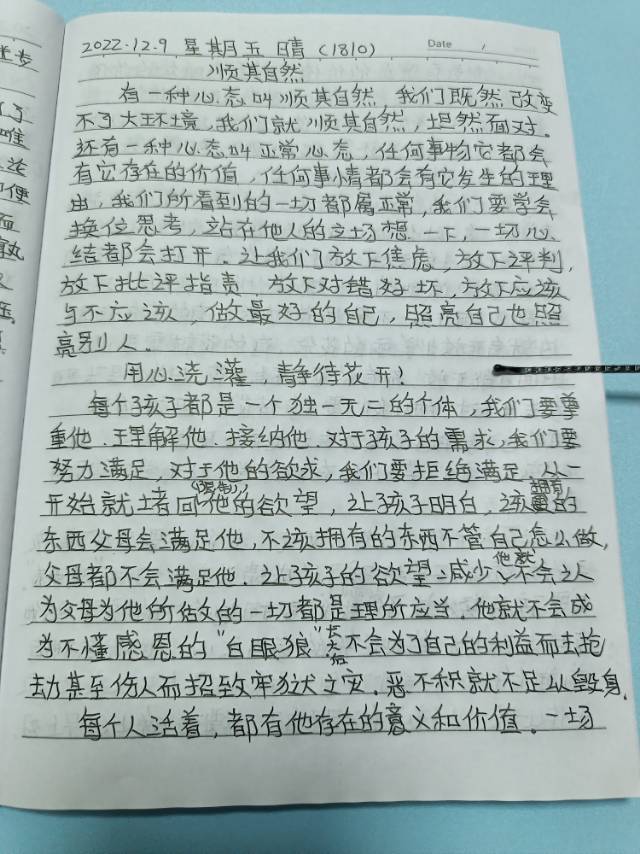 2022.12.9 星期五 晴 (1810)
Date /
顺其自然
有一种心态叫顺其自然,我们既然改变
不了大环境,我们就顺其自然,坦然面对。
还有一种心态叫正常心态,任何事物它都会
有它存在的价值,任何事情都会有它发生的理
由,我们所看到的一切都属正常,我们要学会
换位思考,站在他人的立场想一下,一切心
结都会打开。让我们放下焦虑,放下评判,
放下批评指责,放下对错好坏,放下应该
与不应该,做最好的自己,照亮自己也照
亮别人。
用心浇灌,静待花开!
每个孩子都是一个独一无二的个体,我们要尊
重他、理解他、接纳他、对于孩子的需求,我们要
努力满足,对于他的欲求,我们要拒绝满足,从一
开始就堵回(限制)他的欲望,让孩子明白,该拥有的
东西父母会满足他,不该拥有的东西不管自己怎么做,
父母都不会满足他。让孩子的欲望减少,他就不会认
为父母为他所做的一切都是理所应当,他就不会成
为不懂感恩的"白眼狼"长大后不会为了自己的利益而去抢
劫甚至伤人而招致牢狱之灾。恶不积就不足以毁身。
每个人活着,都有他存在的意义和价值。一场